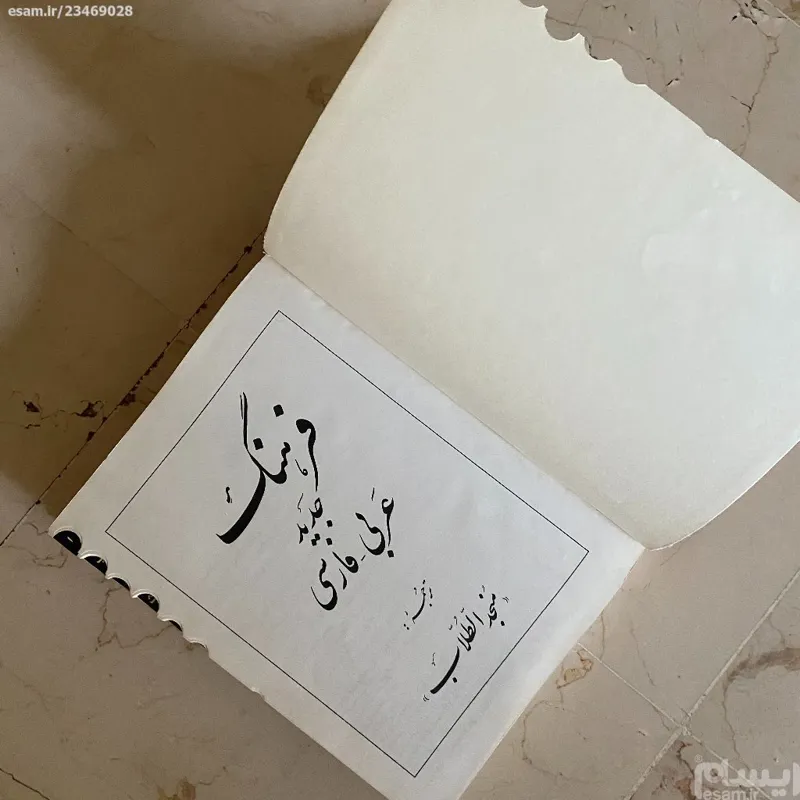 esam.ir/23469028
فرهنگ
جدید
عربی - فارسی
ترجمهٔ:
«منجد الطّلاب»
ایسام
esam.ir